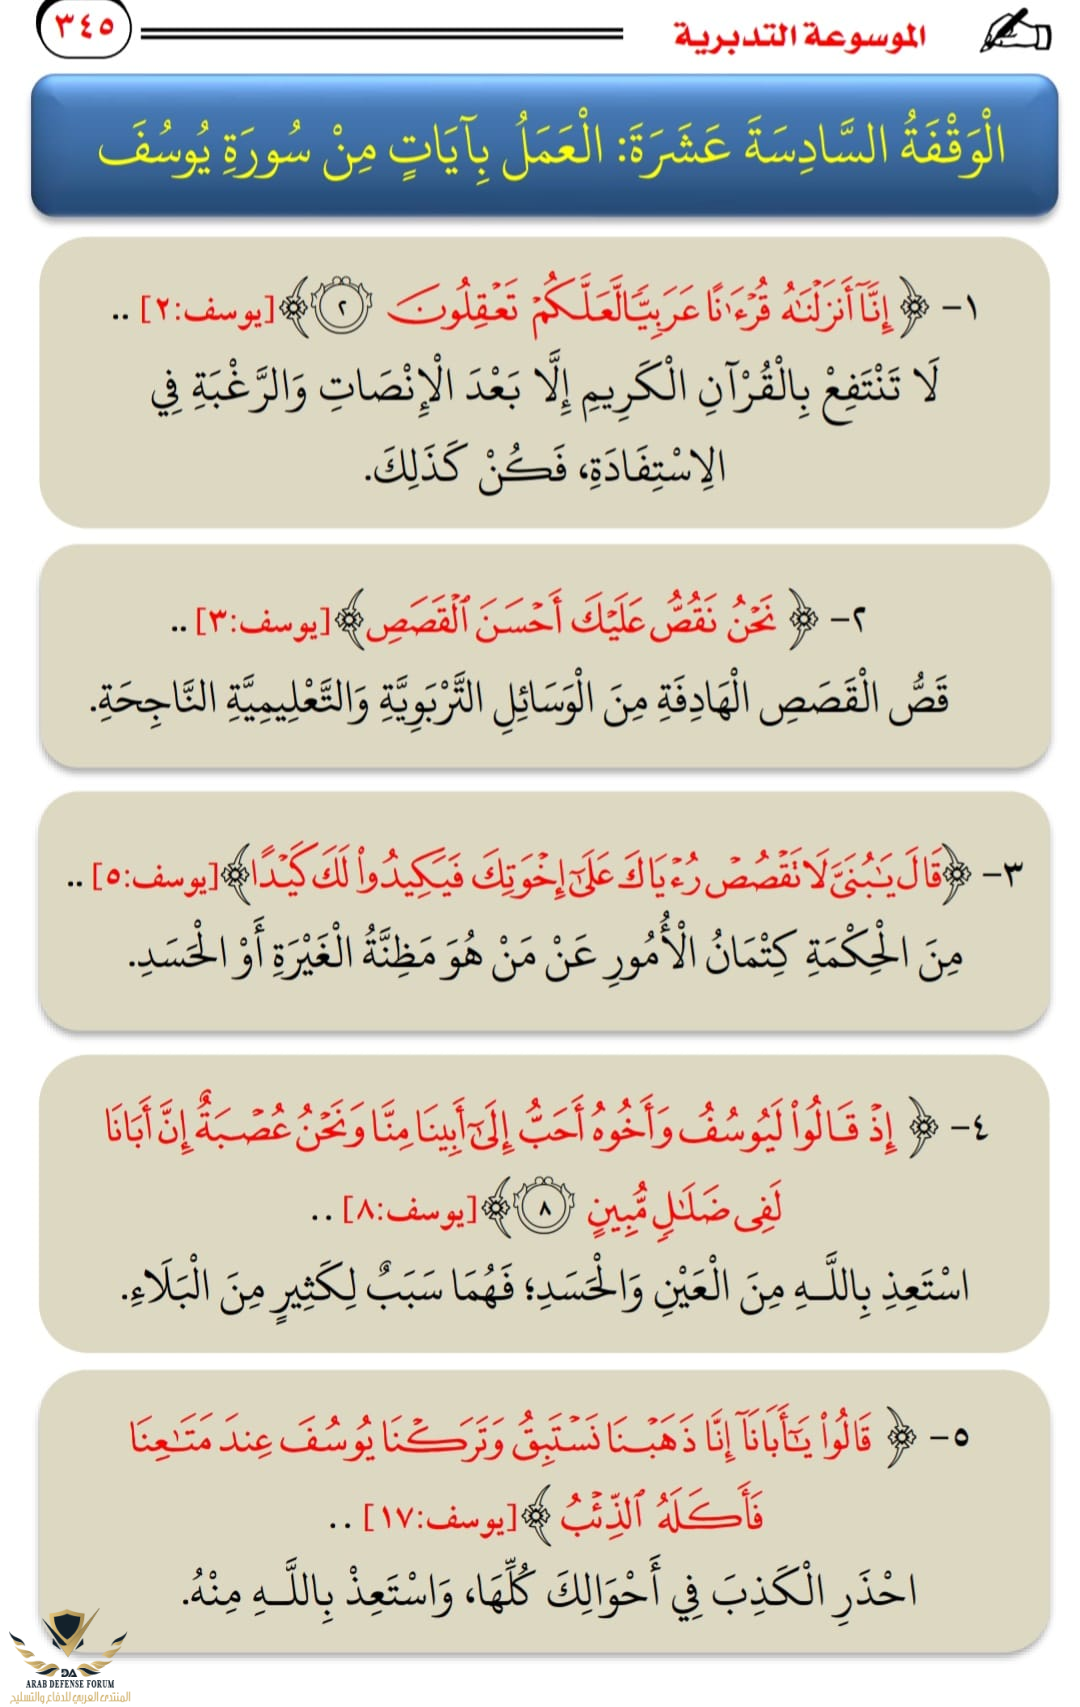 الموسوعة التدبرية
٣٤٥
الْوَقْفَةُ السَّادِسَةَ عَشَرَةَ: الْعَمَلُ بِآيَاتٍ مِنْ سُورَةِ يُوسُفَ
١- ﴿ إِنَّآ أَنزَلْنَٰهُ قُرْءَٰنًا عَرَبِيًّا لَّعَلَّكُمْ تَعْقِلُونَ ٢ ﴾ [يوسف:٢] ..
لَا تَنْتَفِعْ بِالْقُرْآنِ الْكَرِيمِ إِلَّا بَعْدَ الْإِنْصَاتِ وَالرَّغْبَةِ فِي
الِاسْتِفَادَةِ، فَكُنْ كَذَلِكَ.
٢- ﴿ نَحْنُ نَقُصُّ عَلَيْكَ أَحْسَنَ ٱلْقَصَصِ ﴾ [يوسف:٣] ..
قَصُّ الْقَصَصِ الْهَادِفَةِ مِنَ الْوَسَائِلِ التَّرْبَوِيَّةِ وَالتَّعْلِيمِيَّةِ النَّاجِحَةِ.
٣- ﴿ قَالَ يَٰبُنَىَّ لَا تَقْصُصْ رُءْيَاكَ عَلَىٰٓ إِخْوَتِكَ فَيَكِيدُوا۟ لَكَ كَيْدًا ﴾ [يوسف:٥] ..
مِنَ الْحِكْمَةِ كِتْمَانُ الْأُمُورِ عَنْ مَنْ هُوَ مَظِنَّةُ الْغَيْرَةِ أَوْ الْحَسَدِ.
٤- ﴿ إِذْ قَالُوا۟ لَيُوسُفُ وَأَخُوهُ أَحَبُّ إِلَىٰٓ أَبِينَا مِنَّا وَنَحْنُ عُصْبَةٌ إِنَّ أَبَانَا
لَفِى ضَلَٰلٍ مُّبِينٍ ٨ ﴾ [يوسف:٨] ..
اسْتَعِذِ بِاللَّهِ مِنَ الْعَيْنِ وَالْحَسَدِ؛ فَهُمَا سَبَبٌ لِكَثِيرٍ مِنَ الْبَلَاءِ.
٥- ﴿ قَالُوا۟ يَٰٓأَبَانَآ إِنَّا ذَهَبْنَا نَسْتَبِقُ وَتَرَكْنَا يُوسُفَ عِندَ مَتَٰعِنَا
فَأَكَلَهُ ٱلذِّئْبُ ﴾ [يوسف:١٧] ..
احْذَرِ الْكَذِبَ فِي أَحْوَالِكَ كُلِّهَا، وَاسْتَعِذْ بِاللَّهِ مِنْهُ.
DA
ARAB DEFENSE FORUM
المنتدى العربي للدفاع والتسليح